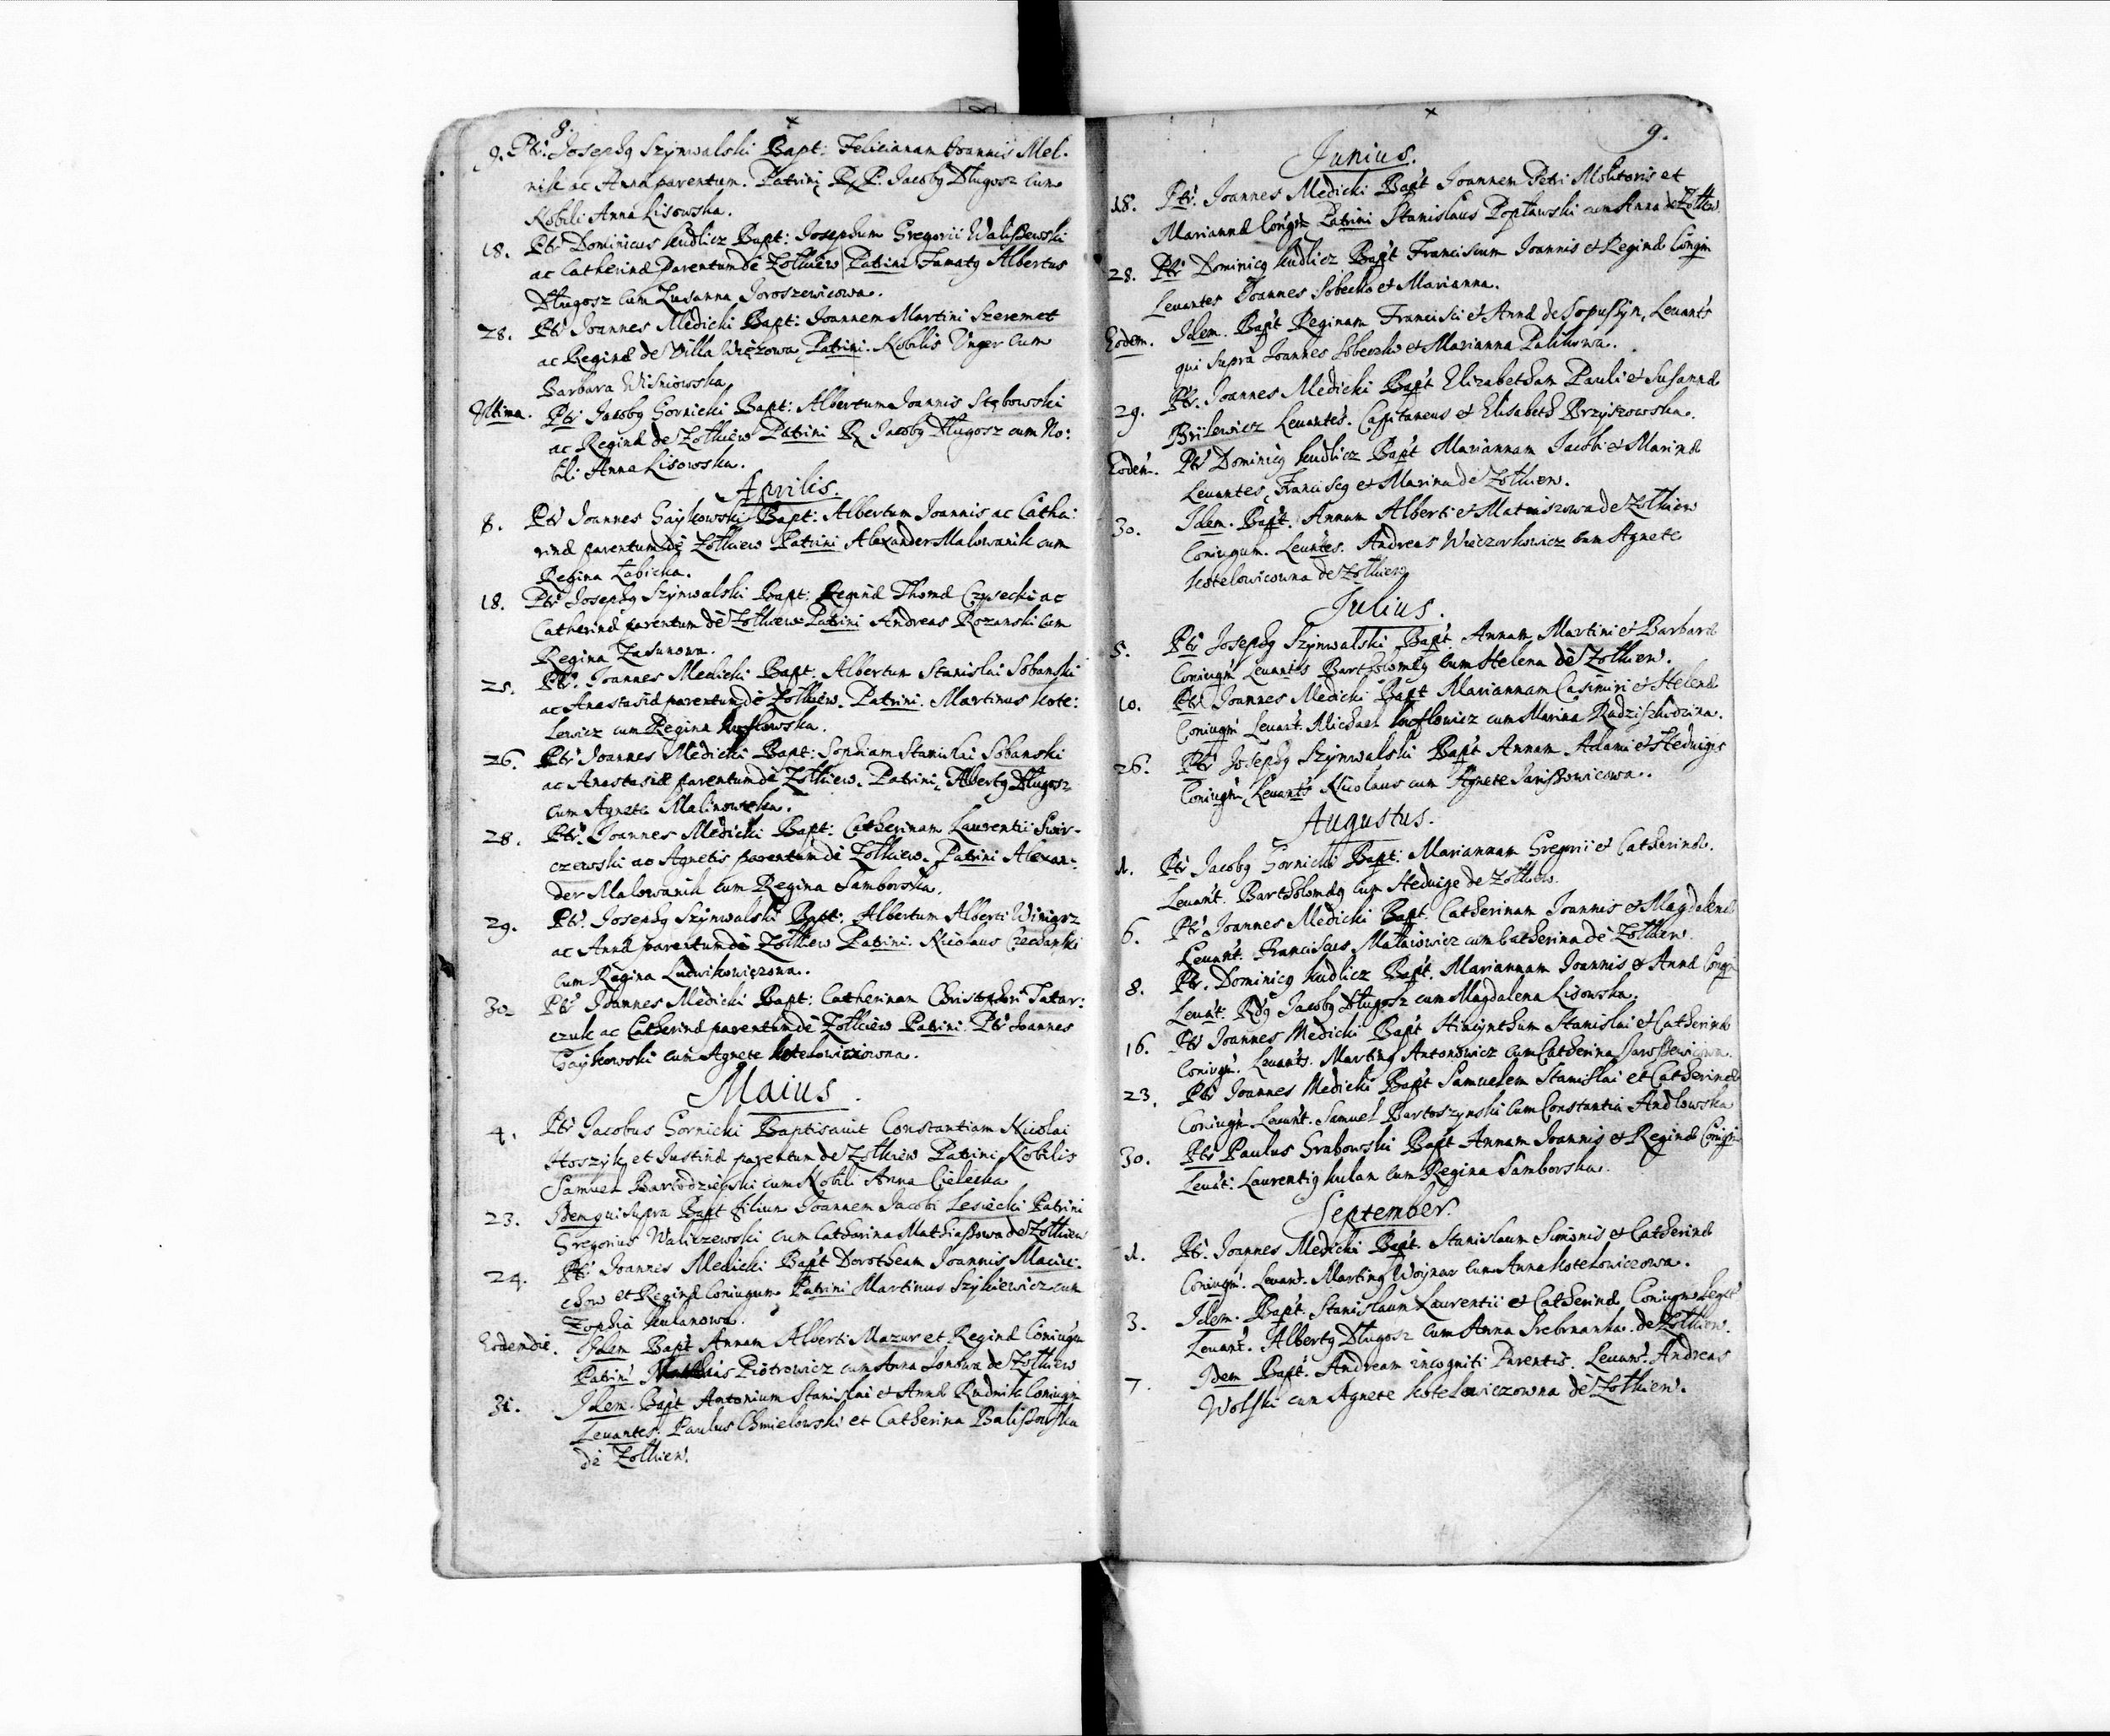 8.
9. Ptr. Josephq Szÿnwalski Bapt: Felicianam Joannis Mel-
nik ac Annæ parentum. Patrini R. P. Jacobq Długosz cum
Nobili Anna Lisowska.
18. Ptr Dominicus Kudlicz Bapt: Josephum Gregorii Walißewski
ac Catherinæ parentum de Zolkiew Patrini Famatq Albertus
Długosz cum Zusanna Joroszewicowa.
28. Ptr Joannes Medicki Bapt: Joannem Martini Szeremet
ac Reginæ de Villa Więzowa Patrini. Nobilis Unger cum
Barbara Wisniowska
Ultima. Ptr Jacobq Gornicki Bapt: Albertum Joannis Stębowski
ac Reginæ de Zolkiew Patrini R. Jacobq Długosz cum No:
bli Anna Lisowska.
Aprilis.
8. Ptr Joannes Gaykowski Bapt: Albertum Joannis ac Catha:
rinæ parentum de Zolkiew Patrini Alexander Malowanik cum
Regina Łabicka.
18. Ptr Josephq Szÿnwalski Bapt: Reginæ Thomæ Czysecki ac
Catherinæ parentum de Zolkiew Patrini Andreas Rozanski cum
Regina Zasunowa.
25. Ptr. Joannes Medicki Bapt. Albertum Stanislai Sobanski
ac Anastasiæ parentum de Zolkiew. Patrini. Martinus Kote:
lewicz cum Regina
26. Ptr Joannes Medicki Bapt: Sophiam Stanislai Sobanski
ac Anastasiæ parentum de Zolkiew. Patrini, Albertq Długosz
cum Agnete Malinowska.
28. Ptr. Joannes Medicki Bapt: Catherinam Laurentii Swir-
czewski ac Agnetis parentum de Zolkiew. Patrini Alexan-
der Malowanik cum Regina Samborska.
29. Ptr. Josephq Szÿnwalski Bapt: Albertum Alberti Winiarz
ac Annæ parentum de Zolkiew Patrini. Nicolaus
cum Regina Ludwikowiczowa.
30 Ptr Joannes Medicki Bapt: Catherinam Christophori Tatar:
czuk ac Catherinæ parentum de Zolkiew Patrini. Ptr Joannes
Gaykowski cum Agnete Kotelowiczowna.
Maius.
4. Ptr Jacobus Gornicki Baptisauit Constantiam Nicolai
Hoszyk et Iustinæ parentum de Zolkiew Patrini Nobilis
Samuel cum Nobili Anna Cielecka
23. Idem qui supra Bapt filium Joannem Jacobi Lesiecki Patrini
Gregorius Waliczewski cum Catharina Mathiaßowa de Zolkiew
24. Ptr Joannes Medicki Bapt Dorotheam Joannis Maciei:
chow et Reginæ Coniugum Patrini Martinus Szykiewicz cum
Zophia Kulanowa.
Eodem die. Idem Bapt Annam Alberti Mazur et Reginæ Coniugm
Patrini Mathias Piotrowicz cum Anna Jonowa de Zolkiew
31. Idem Bapt Antonium Stanislai et Annæ Rudnik Coniugm
Leuantes. Paulus Chmielowski et Catherina Balißowska
de Zolkiew.
9.
Junius.
18. Ptr. Joannes Medicki Bapt Joannem Petri Molitoris et
Mariannæ Congm Patrini Stanislaus Popławski cum Anna de Zolkw.
28. Ptr Dominicq Kudlicz Bapt Franciscum Joannis et Reginæ Congm
Leuantes Joannes Sobecko et Marianna.
Eodem. Idem. Bapt Reginam Francisci et Annæ de Sopußyn, Leuants
qui supra Joannes Sobeczko et Marianna Palikowa.
29. Ptr. Joannes Medicki Bapt Elizabetham Pauli et Susannæ
Brÿlewicz Leuantes. Capitaneus et Elisabeth Brzyszowska.
Eodem. Ptr Dominicq Kudlicz Bapt Mariannam Jacobi et Marinæ
Leuantes, Franciscq et Marina de Zolkiew.
30. Idem. Bapt. Annam Alberti et Matwiszowa de Zolkiew
Coniugum. Leuntes. Andreas Wieczorkowicz cum Agnete
Kotelowicowna de Zolkiew
Julius.
5. Ptr Josephq Szÿnwalski Bapt. Annam Martini et Barbaræ
Coniugm Leuantes Bartholomeq cum Helena de Zolkiew.
10. Ptr Joannes Medicki Bapt Mariannam Casimiri et Helenæ
Coniugm Leuant. Michael cum Marina
26. Ptr Josephq Szÿnwalski Bapt Annam Adami et Heduigis
Coniugm Leuants Nicolaus cum Agnete Jarißowicowa.
Augustus.
1. Ptr Jacobq Gornicki Bapt: Mariannam Gregorii et Catherinæ.
Leuant. Bartholomeq cum Heduige de Zolkiew.
6. Ptr Joannes Medicki Bapt. Catherinam Joannis et Magdalenæ
Leuant. Franciscus Mathiowicz cum Catherina de Zolkiew.
8. Ptr. Dominicq Kudlicz Bapt. Mariannam Joannis et Annæ Congm
Leuant. Rdq Jacobq Długosz cum Magdalena Lisowska.
16. Ptr Joannes Medicki Bapt Hiacynthum Stanislai et Catherinæ
Coniugm. Leuants. Martinq Antonowicz cum Catherina Jaroßewiczowa.
23. Ptr Joannes Medicki Bapt Samuelem Stanislai et Catherinæ
Coniugm Leuant. Samuel Bartoszynski cum Constantia Andlowska
30. Ptr Paulus Grabowski Bapt Annam Joannis et Reginæ Coniugm
Leuat: Laurentiq Kulan cum Regina Samborska.
September.
1. Ptr. Joannes Medicki Bapt. Stanislaum Simonis et Catherinæ
Coniugm. Leuant. Martinq Woynar cum Anna Kotelowiczowa.
3. Idem. Bapt. Stanislaum Laurentii et Catherinæ Coniugm
Leuant. Albertq Długosz cum Anna Srebrnanka. de Zolkiew.
7. Idem Bapt. Andream incogniti Parentis. Leuant. Andreas
Wolski cum Agnete Kotelewiczowna de Zolkiew.